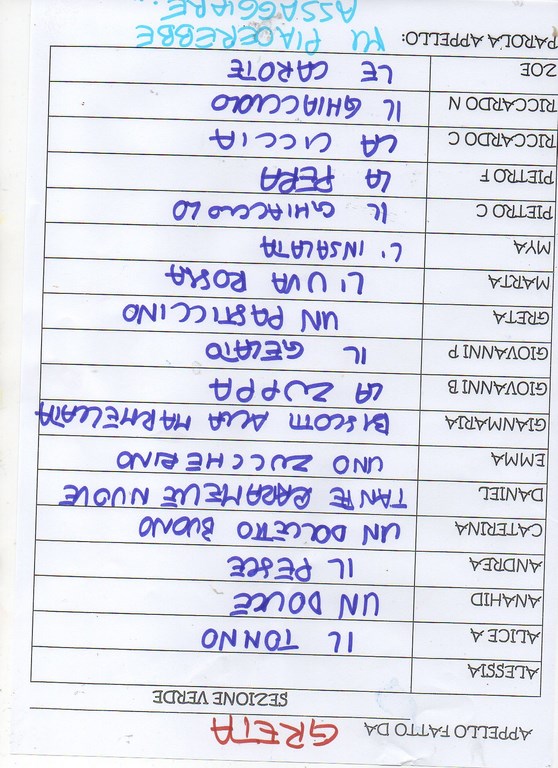 APPELLO FATTO DA GRETA
SEZIONE VERDE
ALESSIA
ALICE A IL TONNO
ANAHID UN DOLCE
ANDREA IL PESCE
CATERINA UN DOLCETTO BUONO
DANIEL TANTE CARAMELLE NUOVE
EMMA UNO ZUCCHERINO
GIANMARIA BISCOTTI ALLA MARMELLATA
GIOVANNI B LA ZUPPA
GIOVANNI P IL GELATO
GRETA UN PASTICCINO
MARTA L'UVA ROSSA
MYA L'INSALATA
PIETRO C IL GHIACCIOLO
PIETRO F LA PERA
RICCARDO C LA CICCIA
RICCARDO N IL GHIACCIOLO
ZOE LE CAROTE
PAROLA APPELLO: MI PIACEREBBE
ASSAGGIARE...